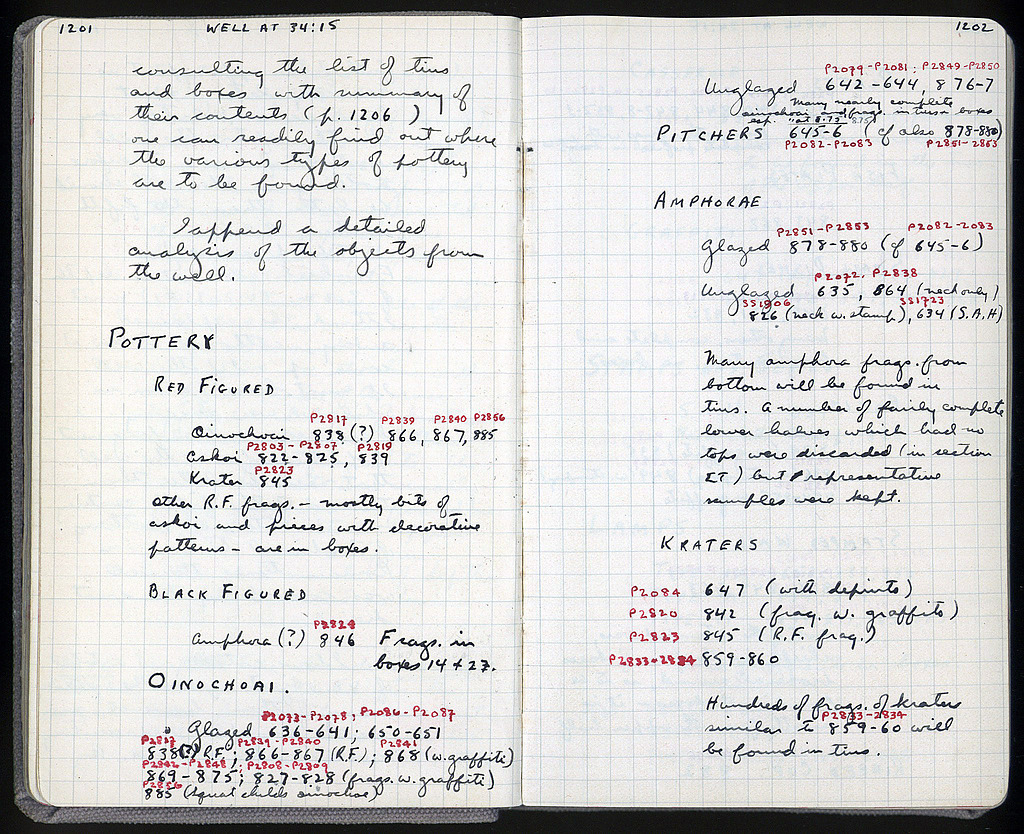 1201
WELL AT 34:15
consulting the list of tins
and boxes with summary of
their contents (p. 1206 )
one can readily find out where
the various types of pottery
are to be found.
I append a detailed
analysis of the objects from
the well.
POTTERY
RED FIGURED
P2817 P2839 P2840 P2856
Oinochoai 838 (?) 866, 867, 885
P2803 - P2807 P2819
askoi 822-825, 839
P2823
Krater 845
other R.F. frags. - mostly bits of
askoi and pieces with decorative
patterns - are in boxes.
BLACK FIGURED
P2824
Amphora (?) 846 Frags. in
boxes 14 + 27.
OINOCHOAI.
P2073-P2078; P2086-P2087
Glazed 636-641; 650-651
P2817 P2839-P2840 P2841
838(?) R.F.; 866-867 (R.F.); 868 (w. graffito)
P2842-P2848; P2808-P2809
869-875; 827-828 (frags. w. graffiti)
P2856
885 (squat childs oinochoe)
1202
P2079-P2081; P2849-P2850
Unglazed 642-644, 876-7
Many nearly complete
oinochoai and frags. in tins + boxes
esp. "at 8.73" 8.75
PITCHERS 645-6 (cf also 878-880)
P2082-P2083 P2851-2853
AMPHORAE
P2851-P2853 P2082-2083
Glazed 878-880 (cf 645-6)
P2072, P2838
Unglazed 635, 864 (neck only)
SS1906 SS1723
826 (neck w. stamp), 634 (S.A.H)
Many amphora frags. from
bottom will be found in
tins. A number of fairly complete
lower halves which had no
tops were discarded (in section
ET) but representative
samples were kept.
KRATERS
P2084 647 (with depinto)
P2820 842 (frag. w. graffito)
P2823 845 (R.F. frag.)
P2833-2834 859-860
Hundreds of frags. of kraters
P2833-2834
similar to 859-60 will
be found in tins.